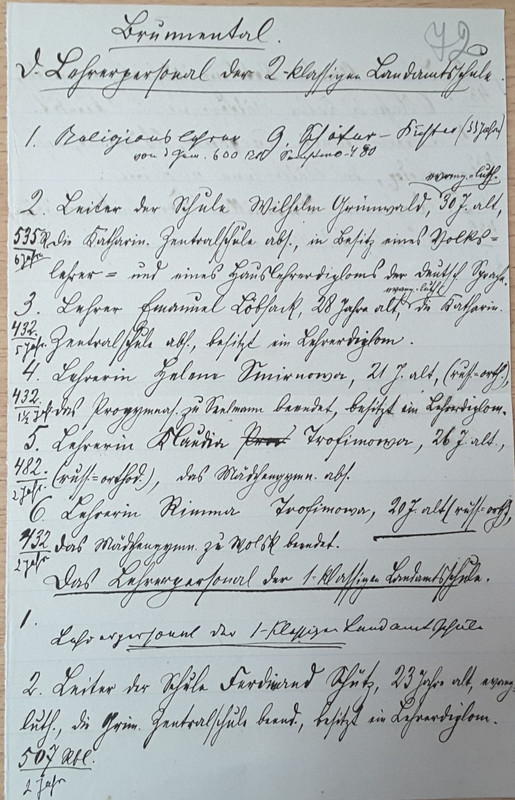 72
Brunnental.
D. Lehrerpersonal der 2-klassigen Landamtsschule.
1. Religionslehrer G. Schäfer - Küster (33 Jahr)
von d Gem. 600 Rbl
evang.-luth.
2. Leiter der Schule Wilhelm Grünwald, 30 J. alt,
535 R. die Katharin. Zentralschule abs., in Besitz eines Volks=
6 Jahr.
lehrer= und eines Hauslehrerdiploms der deutsch Sprache.
evang.-luth.
3. Lehrer Emanuel Löbsack, 28 Jahre alt, die Katharin.
432. Zentralschule abs., besitzt ein Lehrerdiplom.
5 Jahr.
4. Lehrerin Helene Smirnowa, 21 J. alt, (russ=orth.),
432. das Progymnas. zu Seelmann beendet, besitzt ein Lehrerdiplom.
1½ J.
5. Lehrerin Klaudia Trofimowa, 26 J. alt,
482. (russ.-orthod.), das Mädchengymn. abs.
2 Jahr.
6. Lehrerin Rimma Trofimowa, 20 J. alt (russ=orth),
432 das Mädchengymn. zu Wolsk beendet.
2 Jahr
Das Lehrerpersonal der 1-klassigen Landamtsschule.
1.
Lehrerpersonal der 1-klassigen Landamtschule
2. Leiter der Schule Ferdinand Schütz, 23 Jahre alt, evang-
luth., die Grim. Zentralschule beend., besitzt ein Lehrerdiplom.
507 Rbl.
2 Jahr